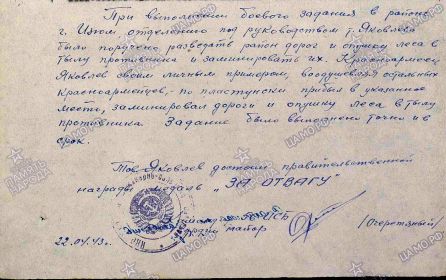 При выполнении боевого задания в районе
г. Изюм, отделению под руководством т. Яковлева
было поручено разведать район дорог и опушку леса в
тылу противника и заминировать их. Красноармеец
Яковлев своим личным примером, воодушевляя остальных
красноармейцев, - по пластунски прибыл в указанное
место, заминировал дороги и опушку леса в тылу
противника. Задание было выполнено точно и в
срок.
Тов. Яковлев достоин правительственной
награды медаль "ЗА ОТВАГУ"
майор
22.04.43г.
ПАМЯТЬ НАРОДА
ЦАМО.РФ